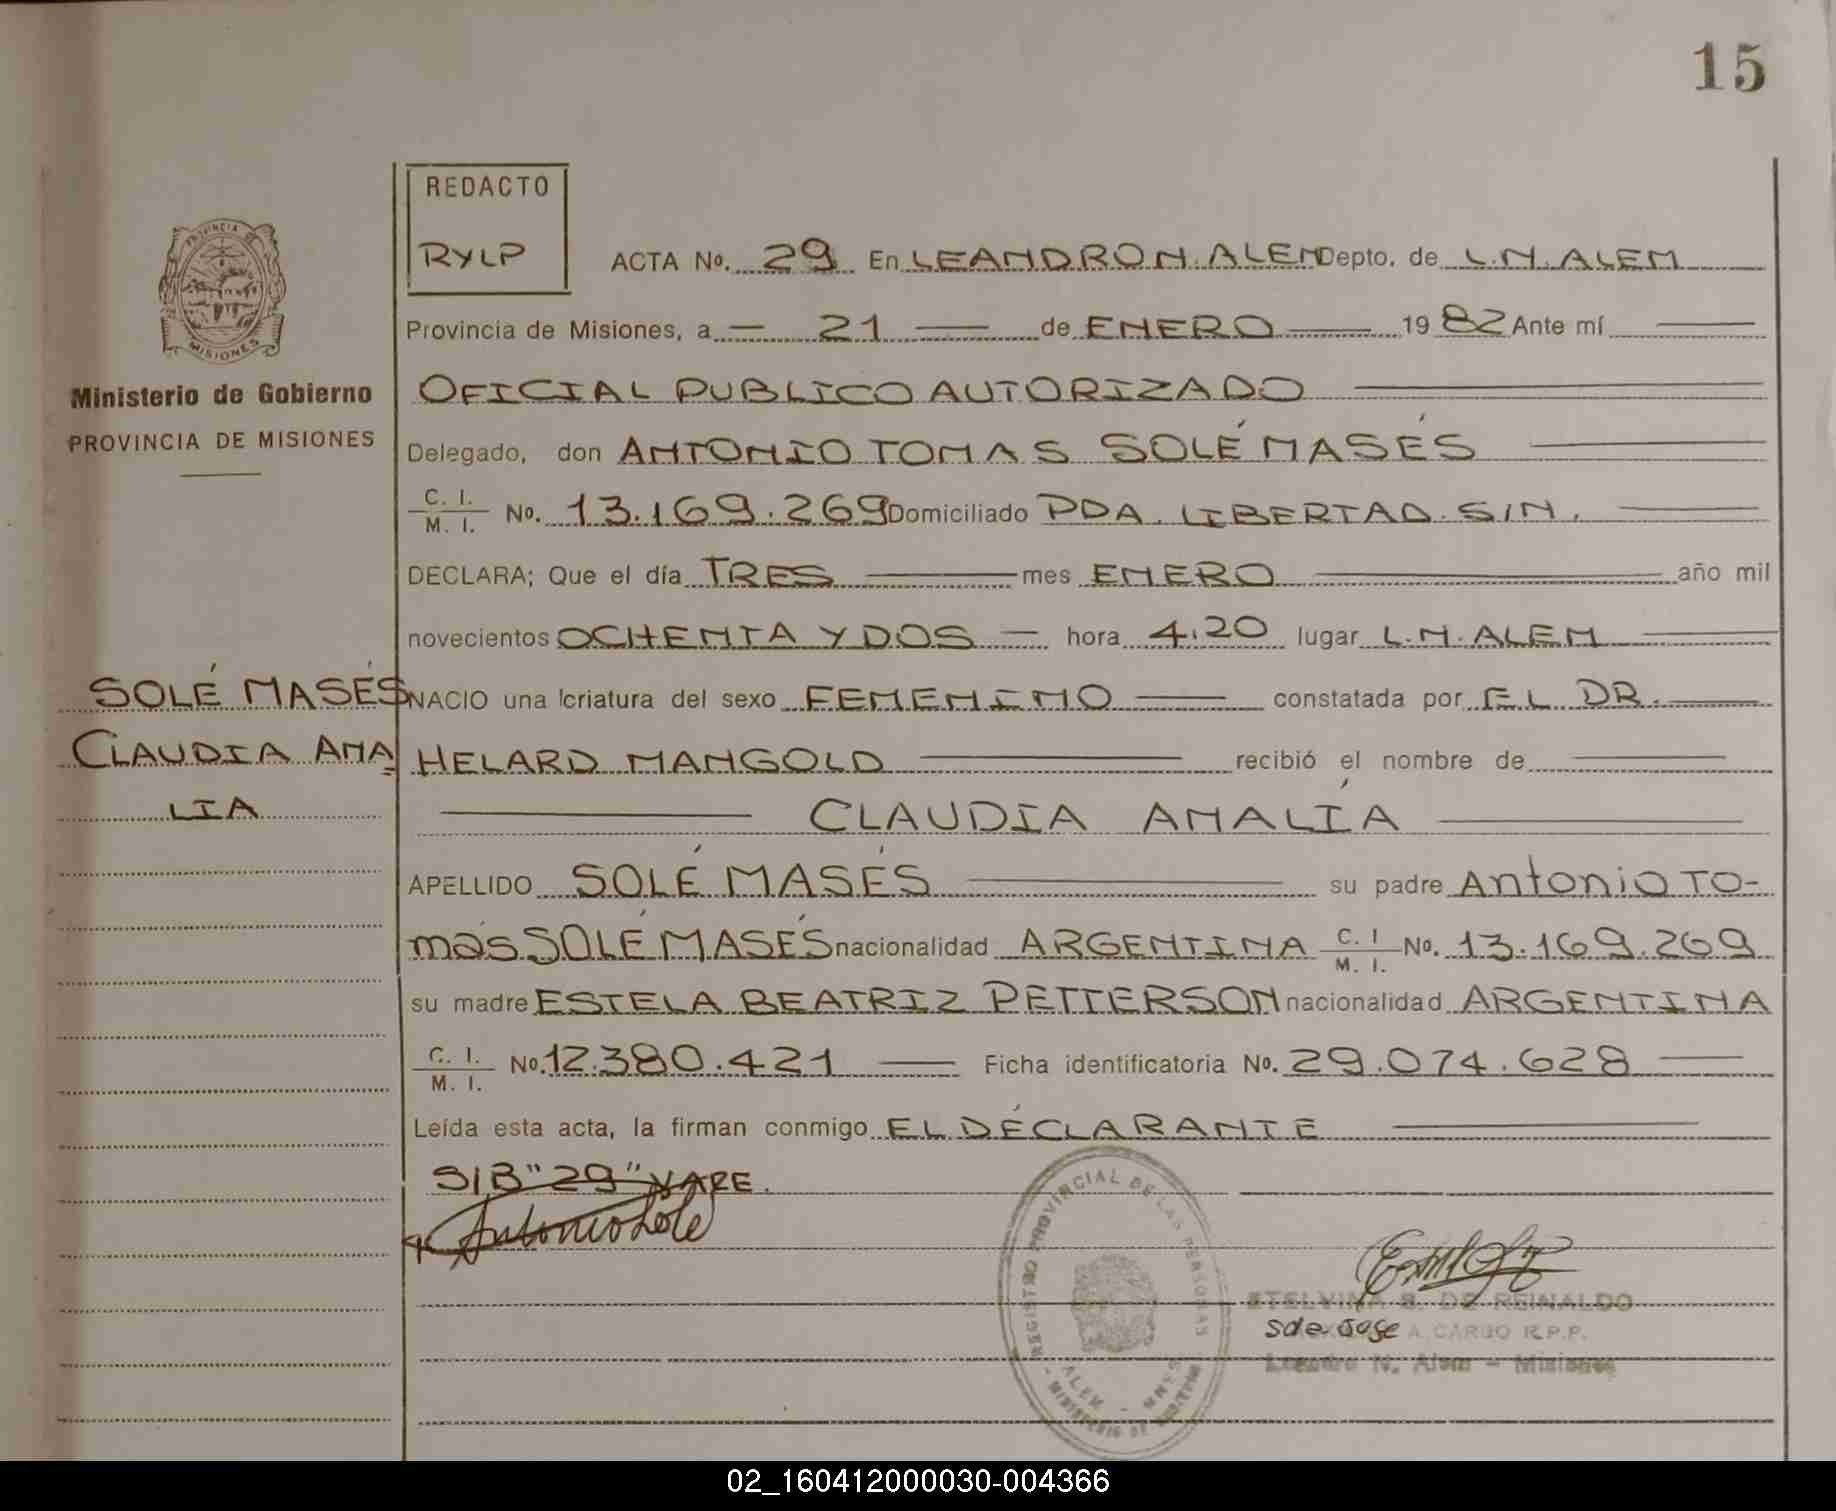 15
REDACTO
RYLP
ACTA No. 29 En LEANDRO N. ALEM Depto. de L.N. ALEM
PROVINCIA DE
MISIONES
Provincia de Misiones, a 21 de ENERO 19 82 Ante mí
Ministerio de Gobierno
PROVINCIA DE MISIONES
OFICIAL PUBLICO AUTORIZADO
Delegado, don ANTONIO TOMAS SOLÉ MASÉS
C. I. M. I. No. 13.169.269 Domiciliado PDA. LIBERTAD S/N.
DECLARA; Que el día TRES mes ENERO año mil
novecientos OCHENTA Y DOS hora 4.20 lugar L.N. ALEM
SOLÉ MASÉS
CLAUDIA AMA
LIA
NACIO una criatura del sexo FEMENINO constatada por EL DR.
HELARD MANGOLD recibió el nombre de
CLAUDIA AMALÍA
APELLIDO SOLÉ MASÉS su padre Antonio TO-
mas SOLÉ MASÉS nacionalidad ARGENTINA C. I M. I. No. 13.169.269
su madre ESTELA BEATRIZ PETTERSON nacionalidad ARGENTINA
C. I. M. I. No. 12.380.421 Ficha identificatoria No. 29.074.628
Leída esta acta, la firman conmigo EL DÉCLARANTE
S/B "29" VARE.
Antonio Sole
REGISTRO PROVINCIAL DE LAS PERSONAS
ALEM - MNES
- MINISTERIO DE GOBIERNO
ETELVINA S. DE REINALDO
A CARGO R.P.P.
Leandro N. Alem - Misiones
02_160412000030-004366